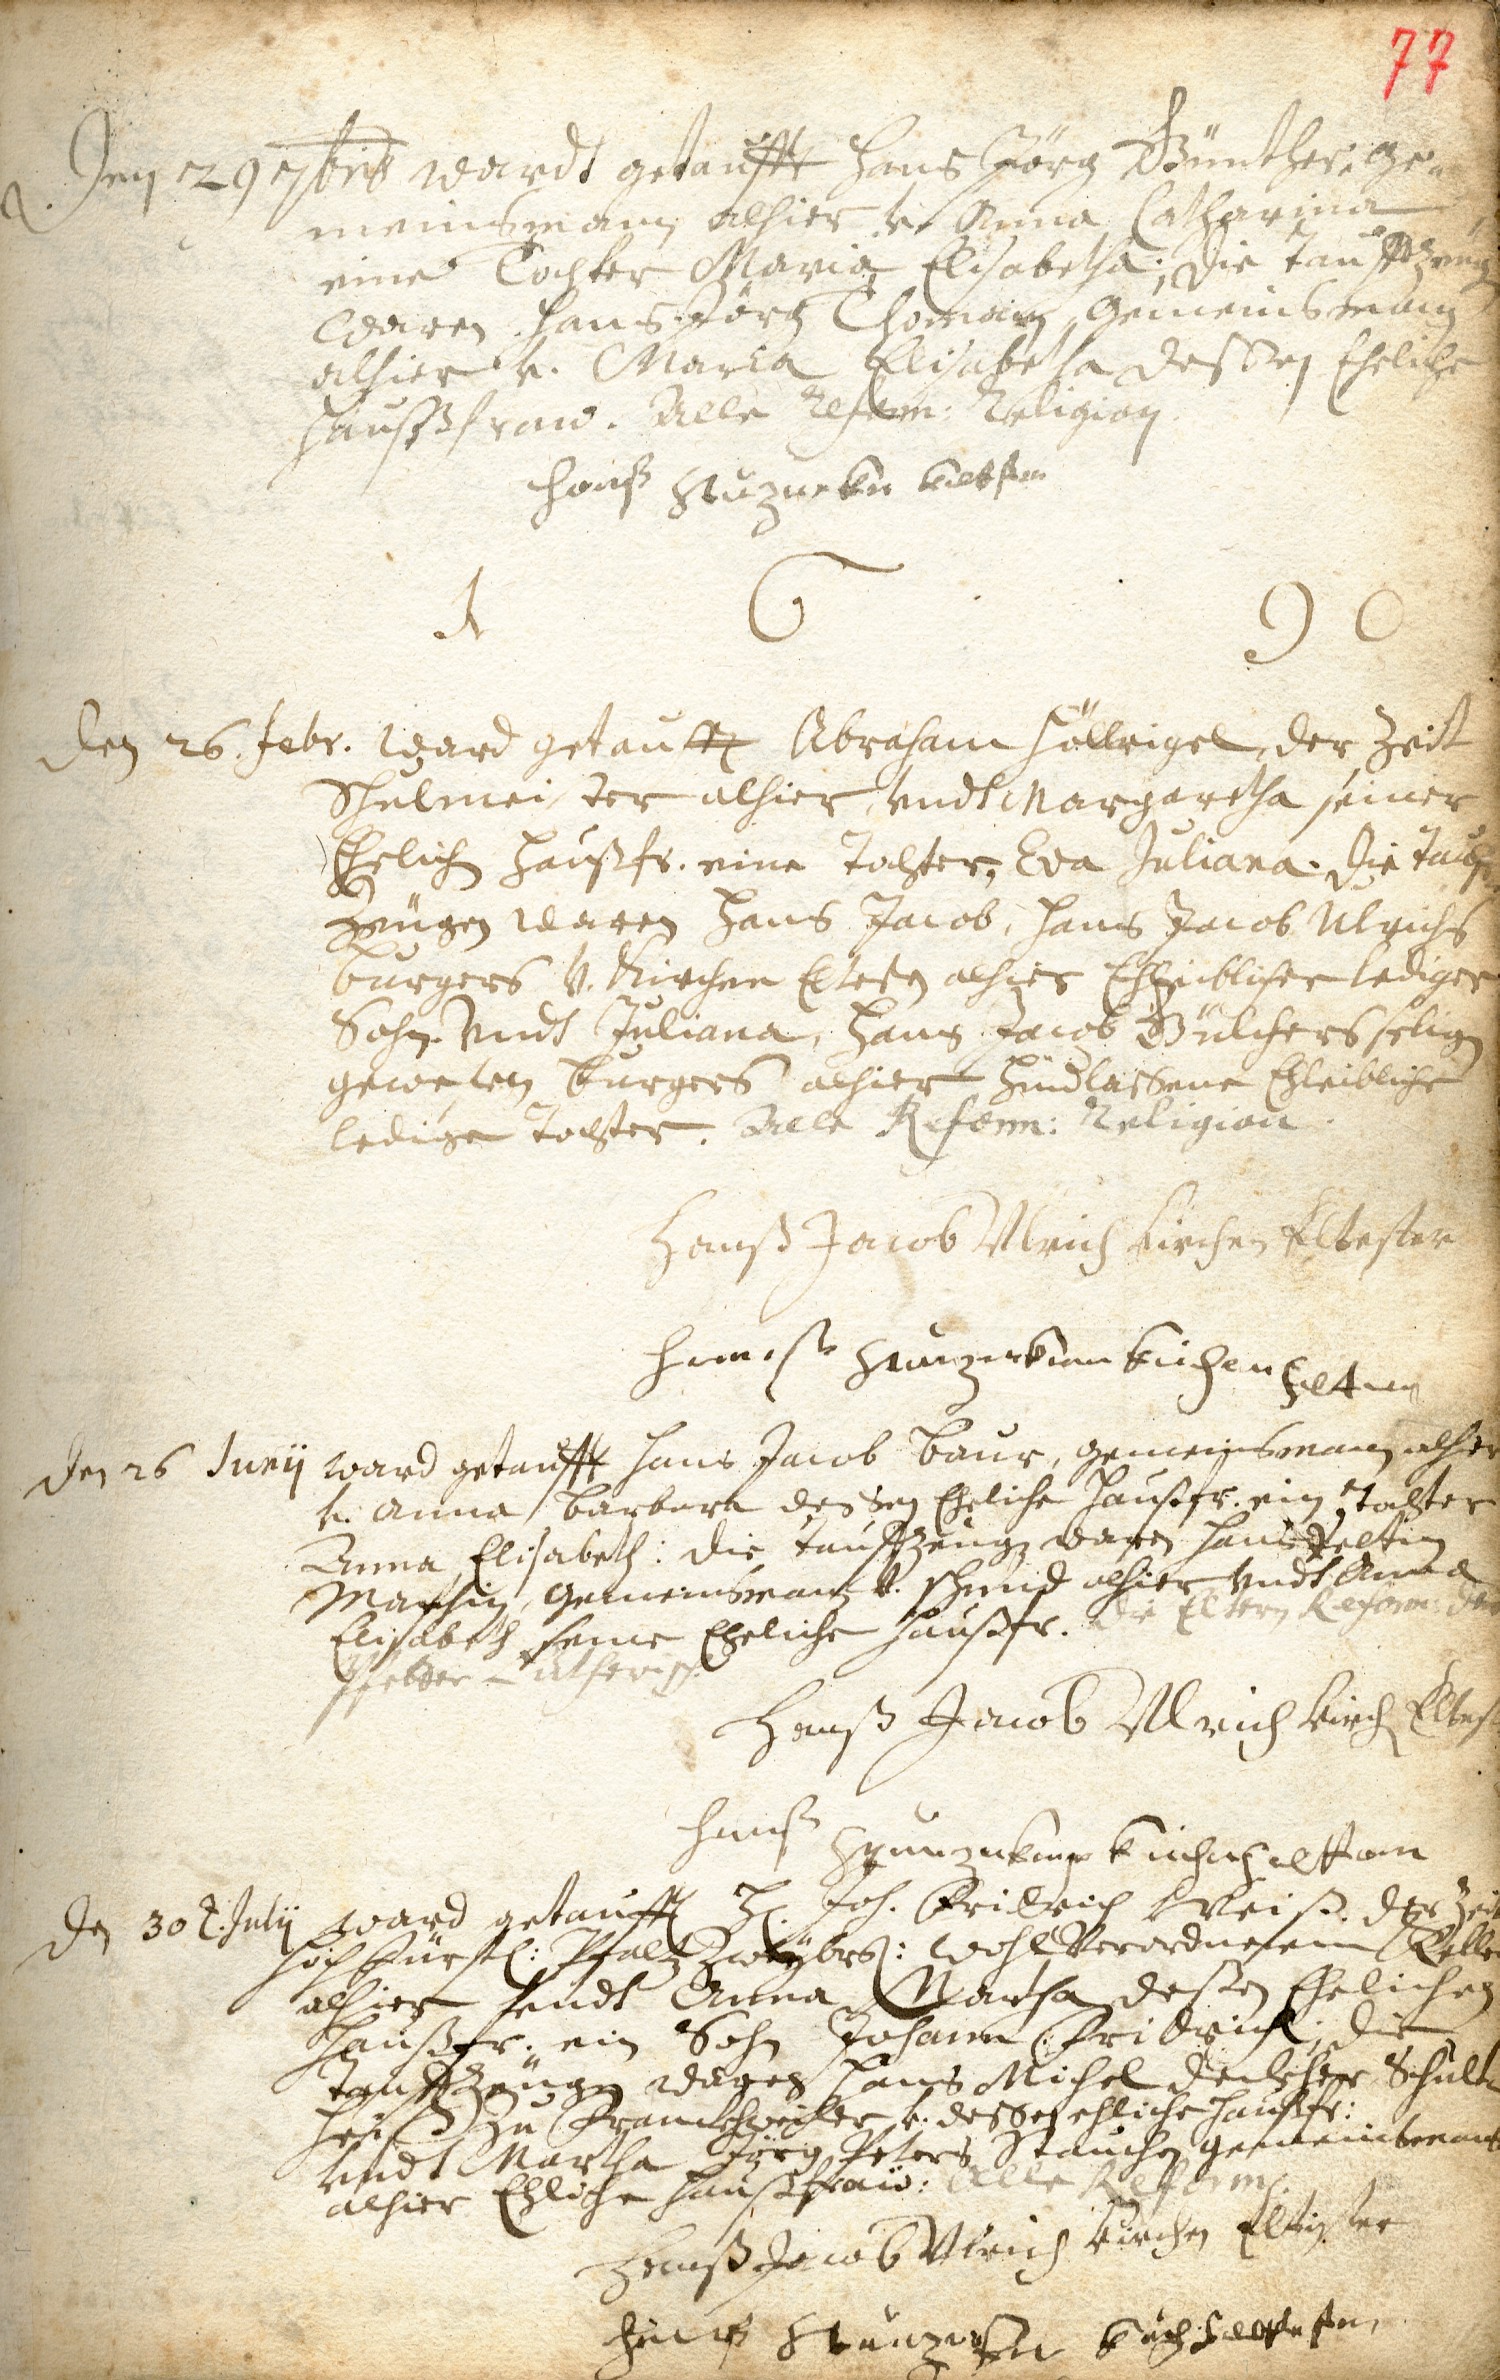 77
Den 29 7bris wardt getaufft Hans Jörg Günther, Ge-
meinsmann alhier v. Anna Catharina
eine Tochter Maria Elisabetha; die tauffzeüg
waren Hans Jörg Thoman, Gemeinsmann
alhier v. Maria Elisabetha dessen Eheliche
haußfraw. Alle Reform: Religion.
Hanß
1 6 9 0
Den 26. Febr. ward getaufft Abraham Höllrigel, der Zeit
Schulmeister alhier, undt Margaretha seiner
Ehelich Haußfr. eine Tochter, Eva Juliana. Die Tauff
Zeügen waren Hans Jacob, Hans Jacob Ulrichs
burgers v. Kirchen Eltesten alhier Eheleiblicher lediger
Sohn. Undt Juliana, Hans Jacob Bülchers selig
gewesen burgers alhier hindlassene Eheleibliche
ledige Tochter. Alle Reform: Religion.
Hanß Jacob Ulrich Kirchen Eltester
Den 26 Junij ward getaufft Hans Jacob Baur, gemeinsmann alhier
v. Anna Barbara dessen Eheliche Haußfr. ein Tochter
Anna Elisabeth: die tauffzeüg waren Hans Veltin
Mathis, Gemeinsmann v. schmid alhier undt Anna
Elisabeth seine Eheliche Haußfr. Die Eltern Reform: die
Lutherisch.
Hanß Jacob Ulrich Kirch Eltest
Hanß
Den 30 t. Julij ward getaufft H. Joh. Fridrich Weiß. der Zeit
Hochfürstl: Pfaltz Zweybr: wohl Verordnetem Keller
alhier undt Anna Martha dessen Ehelichen
Haußfr. ein Sohn Johann Fridrich; die
tauffzeügen waren Hans Michel Schult
heiß zu Franckweiler v. dessen ehliche Haußfr:
undt Martha Jörg Peters Stauchen gemeinsmans
alhier Ehliche Haußfraw: Alle Reform.
Hanß Jacob Ulrich Kirchen Eltester